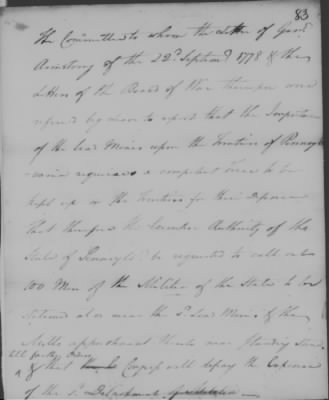 83
The Committee to whom the letter of Genl
Armstrong of the 22d. Septemr. 1778 & the
Letter of the Board of War thereupon were
referred beg leave to report that the Importance
of the Lead Mines upon the Frontiers of Pennsyl-
-vania requires a competent Force to be
kept up on the Frontiers for their Defence
That therefore the Executive Authority of the
State of Pennsylva. be requested to call out
100 Men of the Militia of the State to be
stationed at or near the sd. Lead Mines & the
Mills near Standing Stone
till further Orders
& that Congress will defray the Expences
of the sd. Detachment